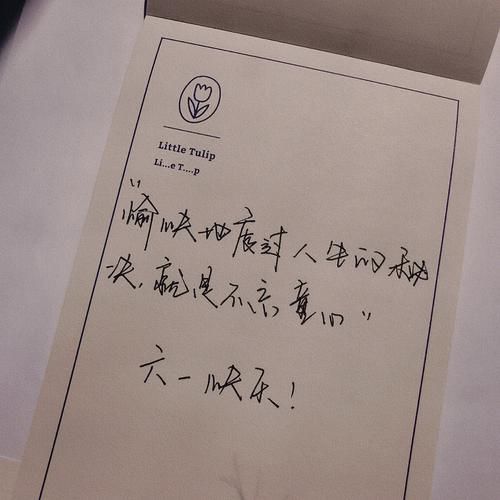 Little Tulip
Li...e T....p
“愉快地度过人生的秘
诀，就是不忘童心”
六一快乐！